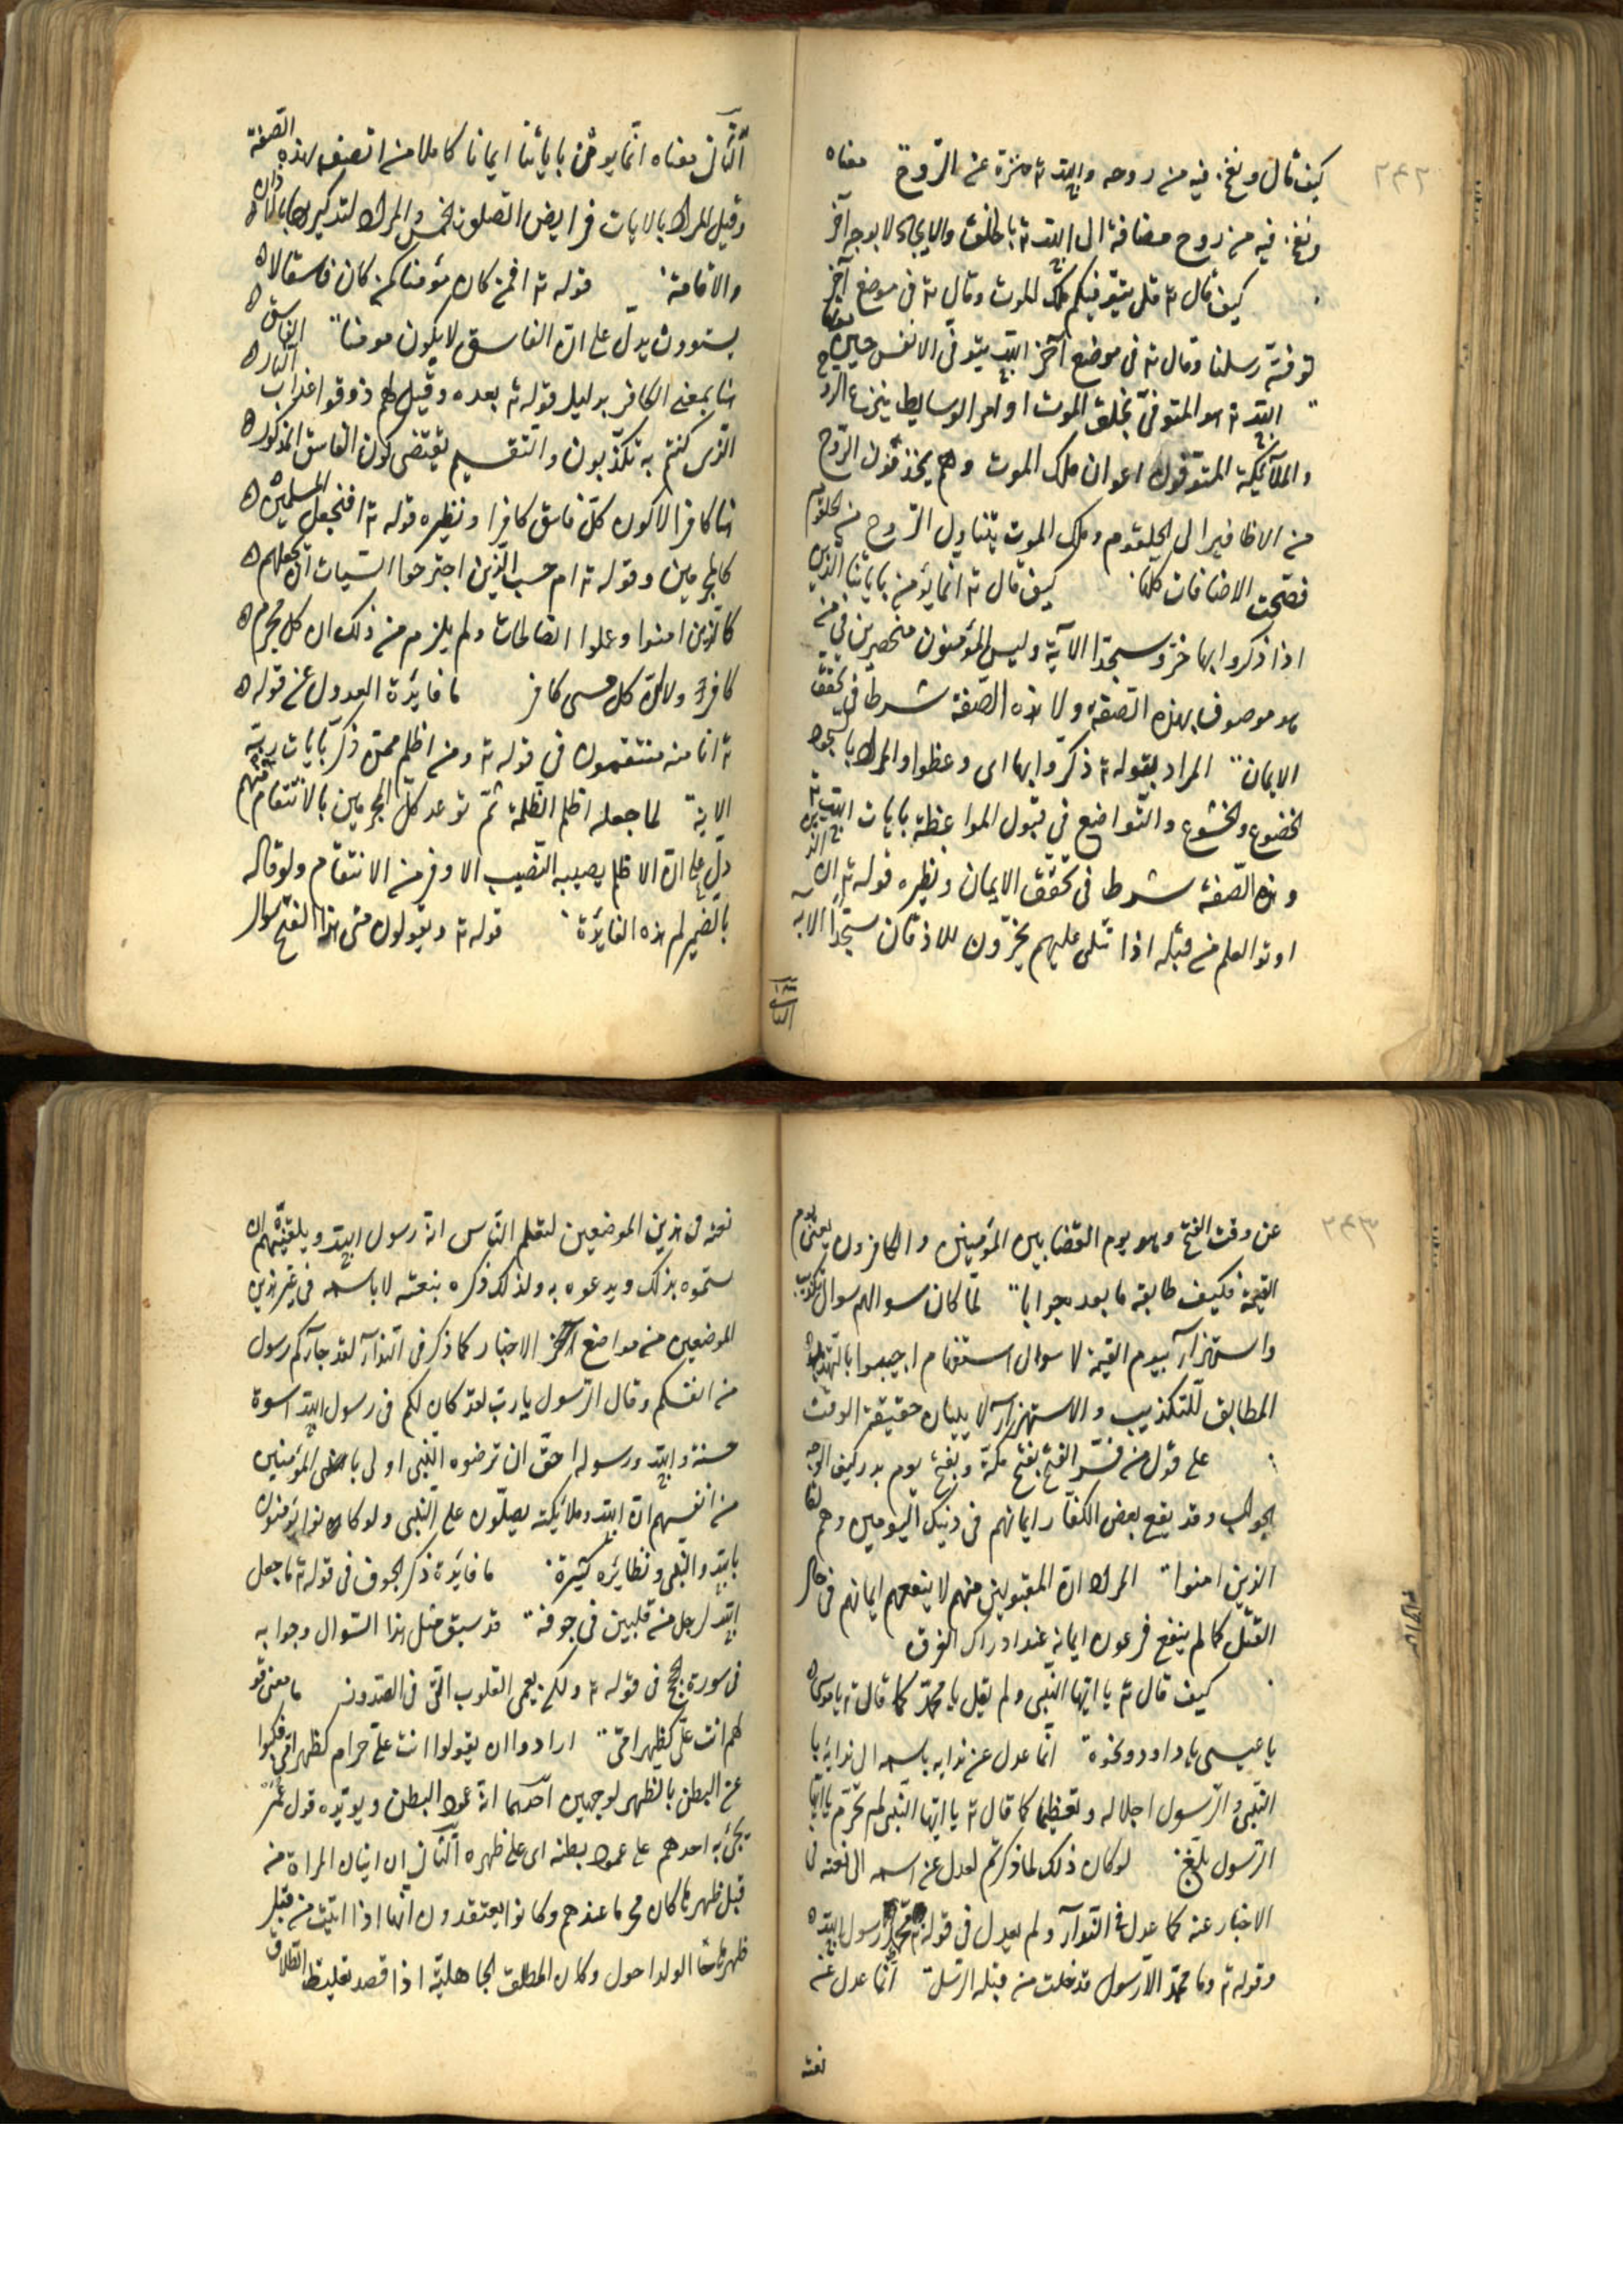 ٢٤٢
كيف قال ونفخ فيه من روحه والله ته منزه عن الروح معناه
ونفخ فيه من روح مضافة الى الله ته بالخلق والايجاد لا بوجه آخر
كيف قال ته قل يتوفيكم ملك الموت وقال ته فى موضع آخر
توفته رسلنا وقال ته فى موضع آخر الله يتوفى الانفس حين موتها
الله ته هو المتوفى بخلق الموت او امر الوسايط بنزع الروح
والملآئكة المتوفون اعوان ملك الموت وهم يجذبون الروح
من الاظافير الى الحلقوم وملك الموت يتناول الروح من الحلقوم
فصحت الاضافات كلها كيف قال ته انما يؤمن باياتنا الذين
اذا ذكروا بها خروا سجدا الآية وليس المؤمنون منحصرين فى من
هو موصوف بهذه الصفة ولا هذه الصفة شرطا فى تحقق
الايمان المراد بقوله ته ذكروا بها اى وعظوا والمراد بالسجود
الخضوع والخشوع والتواضع فى قبول المواعظة بايات الله ته
وهذه الصفة شرط فى تحقق الايمان ونظيره قوله ته ان الذين
اوتوا العلم من قبله اذا تتلى عليهم يخرون للاذقان سجدا الآية
الثانى
الثانى معناه انما يومن باياتنا ايمانا كاملا من اتصف بهذه الصفة
وقيل المراد بالايات فرايض الصلوات الخمس والمراد التذكير بها بالاذان
والاقامة قوله ته افمن كان مؤمنا كمن كان فاسقا لا
يستوون يدل على ان الفاسق لا يكون مومنا الفاسق
هنا بمعنى الكافر بدليل قوله ته بعده وقيل لهم ذوقوا عذاب النار
الذى كنتم به تكذبون والتقسيم يقتضى كون الفاسق المذكور
هنا كافرا لا كون كل فاسق كافرا ونظيره قوله ته افنجعل المسلمين
كالمجرمين وقوله ته ام حسب الذين اجترحوا السيات ان نجعلهم
كالذين امنوا وعملوا الصالحات ولم يلزم من ذلك ان كل مجرم
كافر ولا ان كل مسى كافر ما فايدة العدول عن قوله
ته انا منه منتقمون فى قوله ته ومن اظلم ممن ذكر بايات ربه
الاية لما جعله اظلم الظلمة ثم توعد كل المجرمين بالانتقام منهم
دل على ان الاظلم يصيبه النصيب الاوفر من الانتقام ولو قاله
بالضمير لم هذه الفايدة قوله ته ويقولون متى هذا الفتح سوال
٢٤٣
عن وقت الفتح وهو يوم القضا بين المؤمنين والكافرون يعنى يوم
القيمة فكيف طابقه ما بعده جوابا لما كان سوالهم سوال تكذيب
واستهزآء بيوم القيمة لا سوال استفهام اجيبوا بالتهديد
المطابق للتكذيب والاستهزآء لا ببيان حقيقة الوقت
على قول من فسر الفتح بفتح مكة وبفتح يوم بدر كيف وجه
الجواب وقد يقع بعض الكفار ايمانهم فى ذينك اليومين وهم
الذين امنوا المراد ان المقبولين منهم لا ينفعهم ايمانهم فى حال
القتل كما لم ينفع فرعون ايمانه عند ادراك الغرق
كيف قال ته يا ايها النبى ولم يقل يا محمد كما قال ته يا موسى
يا عيسى يا داود ونحوه انما عدل عن ندايه باسمه الى ندايه يا
النبى والرسول اجلالا له وتعظيما كما قال ته يا ايها النبى لم تحرم يا ايها
الرسول بلغ لو كان ذلك لما ذكرتم لعدل عن اسمه الى نعته فى
الاخبار عنه كما عدل فى الندآء ولم يعدل فى قوله ته محمد رسول الله
وقوله ته وما محمد الا رسول قد خلت من قبله الرسل انما عدل عن
نعته
نعته فى هذين الموضعين لتعلم الناس انه رسول الله ويلقنهم ان
يسموه بذلك ويدعوه به ولذلك ذكره بنعته لا باسمه فى غير هذين
الموضعين من مواضع الاخبار كما ذكر فى الندآء لقد جآءكم رسول
من انفسكم وقال الرسول يا رب لقد كان لكم فى رسول الله اسوة
حسنة والله ورسوله احق ان ترضوه النبى اولى بالمؤمنين
من انفسهم ان الله وملائكته يصلون على النبى ولو كانوا يؤمنون
بالله والنبى ونظايره كثيرة ما فايدة ذكر الجوف فى قوله ته ما جعل
الله لرجل من قلبين فى جوفه قد سبق مثل هذا السوال وجوابه
فى سورة الحج فى قوله ته ولكن تعمى القلوب التى فى الصدور ما معنى قو
لهم انت على كظهر امى ارادوا ان يقولوا انت على حرام كظهر امى فكنوا
عن البطن بالظهر لوجهين احدهما انه عمود البطن ويؤيده قول عمر
يجئ به احدهم على عمود بطنه اى على ظهره الثانى ان اتيان المراة من
قبل ظهرها كان محرما عندهم وكانوا يعتقدون انها اذا اتيت من قبل
ظهرها جا الولد احول وكان المطلق الجاهلية اذا قصد تغليظ الطلاق